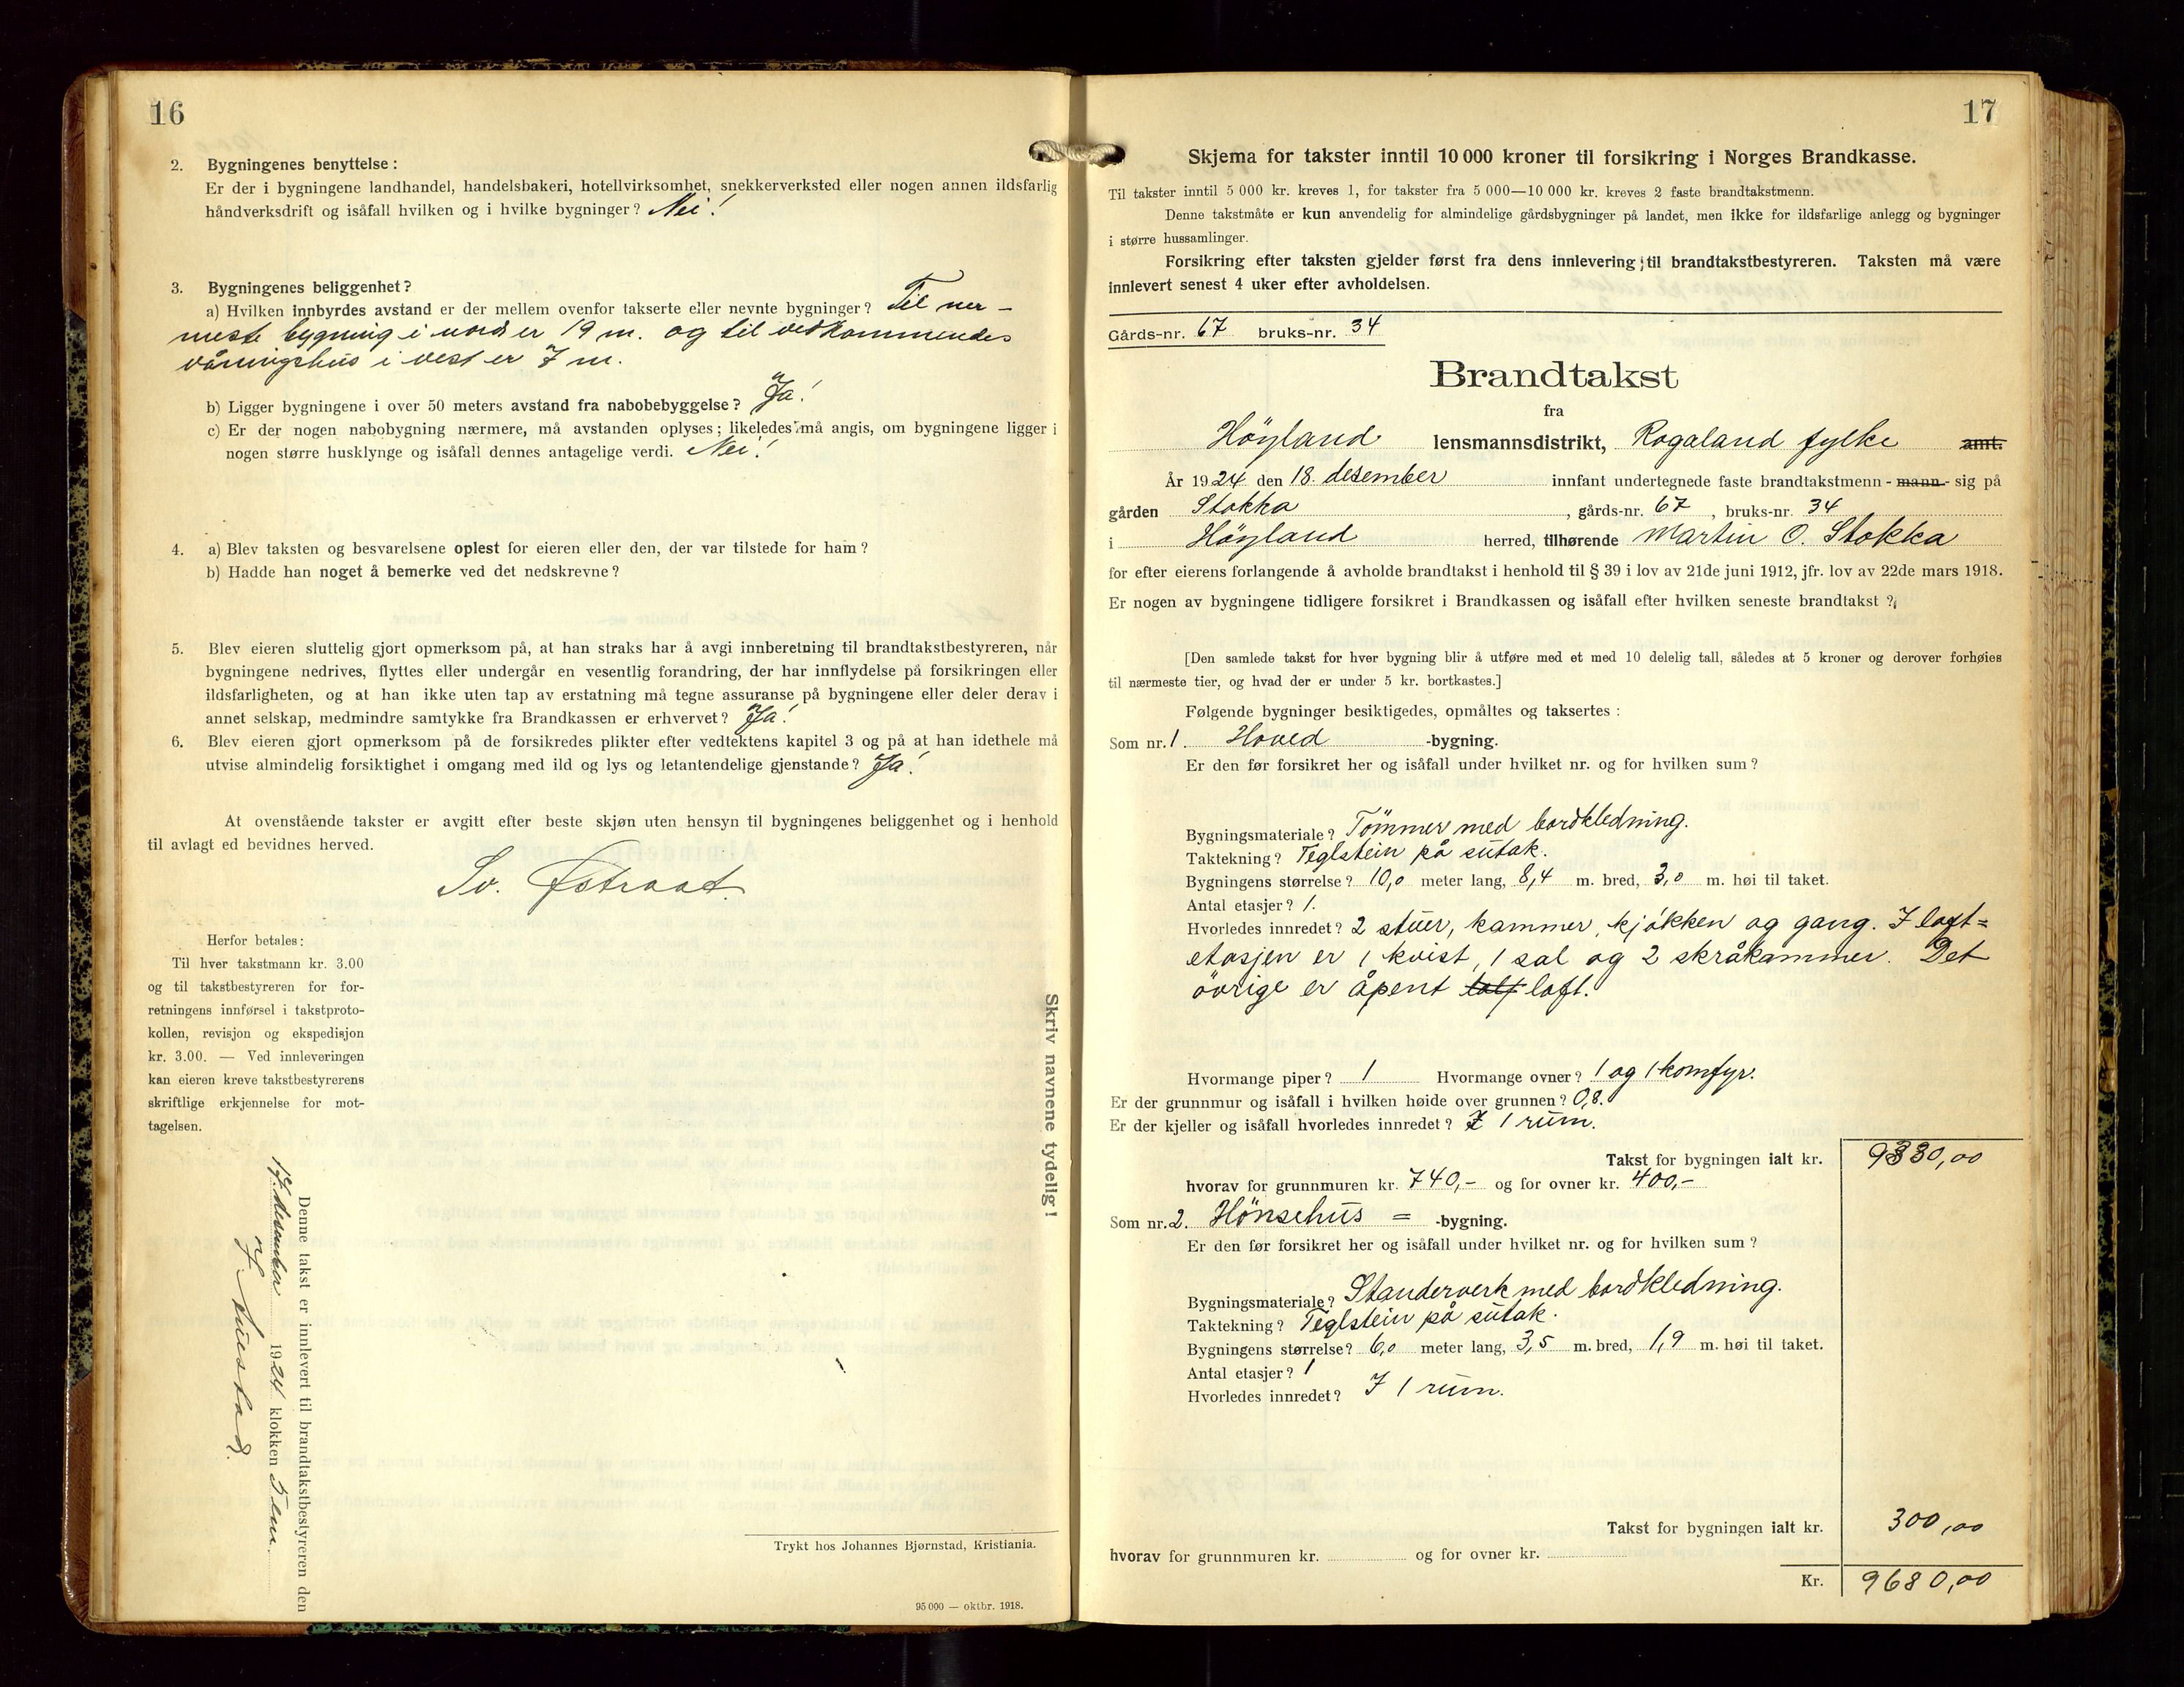 16
2. Bygningenes benyttelse:
Er der i bygningene landhandel, handelsbakeri, hotellvirksomhet, snekkerverksted eller nogen annen ildsfarlig
håndverksdrift og isåfall hvilken og i hvilke bygninger? Nei!
3. Bygningenes beliggenhet?
a) Hvilken innbyrdes avstand er der mellem ovenfor takserte eller nevnte bygninger? Til nær-
meste bygning i nord er 19 m. og til vedkommendes
våningshus i vest er 7 m.
b) Ligger bygningene i over 50 meters avstand fra nabobebyggelse? Ja!
c) Er der nogen nabobygning nærmere, må avstanden oplyses; likeledes må angis, om bygningene ligger i
nogen større husklynge og isåfall dennes antagelige verdi. Nei!
4. a) Blev taksten og besvarelsene oplest for eieren eller den, der var tilstede for ham?
b) Hadde han noget å bemerke ved det nedskrevne?
5. Blev eieren sluttelig gjort opmerksom på, at han straks har å avgi innberetning til brandtakstbestyreren, når
bygningene nedrives, flyttes eller undergår en vesentlig forandring, der har innflydelse på forsikringen eller
ildsfarligheten, og at han ikke uten tap av erstatning må tegne assuranse på bygningene eller deler derav i
annet selskap, medmindre samtykke fra Brandkassen er erhvervet? Ja!
6. Blev eieren gjort opmerksom på de forsikredes plikter efter vedtektens kapitel 3 og på at han idethele må
utvise almindelig forsiktighet i omgang med ild og lys og letantendelige gjenstande? Ja!
At ovenstående takster er avgitt efter beste skjøn uten hensyn til bygningenes beliggenhet og i henhold
til avlagt ed bevidnes herved.
Sv. Østraat.
Herfor betales:
Til hver takstmann kr. 3.00
og til takstbestyreren for for-
retningens innførsel i takstproto-
kollen, revisjon og ekspedisjon
kr. 3.00. — Ved innleveringen
kan eieren kreve takstbestyrerens
skriftlige erkjennelse for mot-
tagelsen.
Skriv navnene tydelig!
Denne takst er innlevert til brandtakstbestyreren den
desember 1924 klokken 5 em.
Trykt hos Johannes Bjørnstad, Kristiania.
95 000 — oktbr. 1918.
17
Skjema for takster inntil 10 000 kroner til forsikring i Norges Brandkasse.
Til takster inntil 5 000 kr. kreves 1, for takster fra 5 000—10 000 kr. kreves 2 faste brandtakstmenn.
Denne takstmåte er kun anvendelig for almindelige gårdsbygninger på landet, men ikke for ildsfarlige anlegg og bygninger
i større hussamlinger.
Forsikring efter taksten gjelder først fra dens innlevering til brandtakstbestyreren. Taksten må være
innlevert senest 4 uker efter avholdelsen.
Gårds-nr. 67 bruks-nr. 34
Brandtakst
fra
Höyland lensmannsdistrikt, Rogaland fylke amt.
År 1924 den 18. desember innfant undertegnede faste brandtakstmenn - mann - sig på
gården Stokka, gårds-nr. 67, bruks-nr. 34
i Höyland herred, tilhørende Martin O. Stokka
for efter eierens forlangende å avholde brandtakst i henhold til § 39 i lov av 21de juni 1912, jfr. lov av 22de mars 1918.
Er nogen av bygningene tidligere forsikret i Brandkassen og isåfall efter hvilken seneste brandtakst?
[Den samlede takst for hver bygning blir å utføre med et med 10 delelig tall, således at 5 kroner og derover forhøies
til nærmeste tier, og hvad der er under 5 kr. bortkastes.]
Følgende bygninger besiktigedes, opmåltes og taksertes:
Som nr. 1. Hoved -bygning.
Er den før forsikret her og isåfall under hvilket nr. og for hvilken sum?
Bygningsmateriale? Tömmer med bordkledning.
Taktekning? Teglstein på sutak.
Bygningens størrelse? 10,0 meter lang, 8,4 m. bred, 3,0 m. høi til taket.
Antal etasjer? 1.
Hvorledes innredet? 2 stuer, kammer, kjökken og gang. I loft=
etasjen er 1 kvist, 1 sal og 2 skråkammer. Det
övrige er åpent loft.
Hvormange piper? 1 Hvormange ovner? 1 og 1 komfyr.
Er der grunnmur og isåfall i hvilken høide over grunnen? 0,8.
Er der kjeller og isåfall hvorledes innredet? I 1 rum.
Takst for bygningen ialt kr.
hvorav for grunnmuren kr. 740,- og for ovner kr. 400,-
Som nr. 2. Hönsehus = -bygning.
Er den før forsikret her og isåfall under hvilket nr. og for hvilken sum?
Bygningsmateriale? Standerverk med bordkledning.
Taktekning? Teglstein på sutak.
Bygningens størrelse? 6,0 meter lang, 3,5 m. bred, 1,9 m. høi til taket.
Antal etasjer? 1
Hvorledes innredet? I 1 rum.
Takst for bygningen ialt kr. 300,00
hvorav for grunnmuren kr. og for ovner kr.
Kr. 9680,00